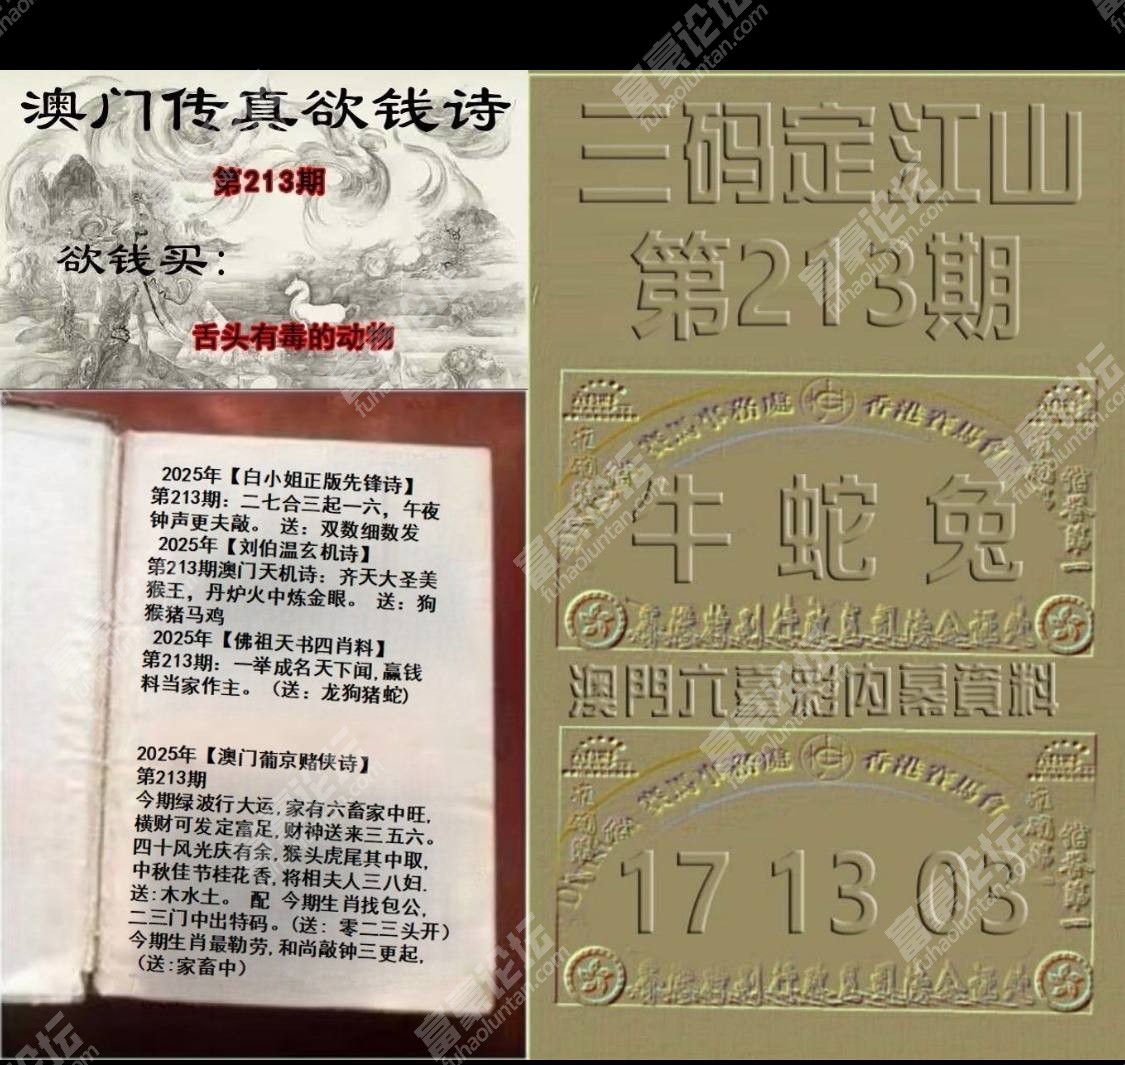 澳门传真欲钱诗
第213期
欲钱买：
舌头有毒的动物
2025年【白小姐正版先锋诗】
第213期：二七合三起一六，午夜
钟声更夫敲。 送：双数细数发
2025年【刘伯温玄机诗】
第213期澳门天机诗：齐天大圣美
猴王，丹炉火中炼金眼。 送：狗
猴猪马鸡
2025年【佛祖天书四肖料】
第213期：一举成名天下闻,赢钱
料当家作主。（送：龙狗猪蛇)
2025年【澳门葡京赌侠诗】
第213期
今期绿波行大运,家有六畜家中旺,
横财可发定富足,财神送来三五六。
四十风光庆有余,猴头虎尾其中取,
中秋佳节桂花香,将相夫人三八妇.
送:木水土。 配 今期生肖找包公,
二三门中出特码。(送：零二三头开）
今期生肖最勤劳,和尚敲钟三更起,
（送:家畜中）
三码定江山
第213期
香港賽馬會
牛 蛇 兔
澳門六臺彩内幕資料
香港賽馬會
17 13 03
富豪论坛
fuhaoluntan.com